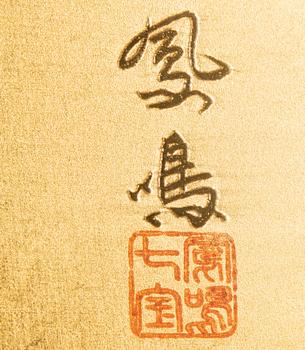 鳳鳴
鳳鳴
七宝